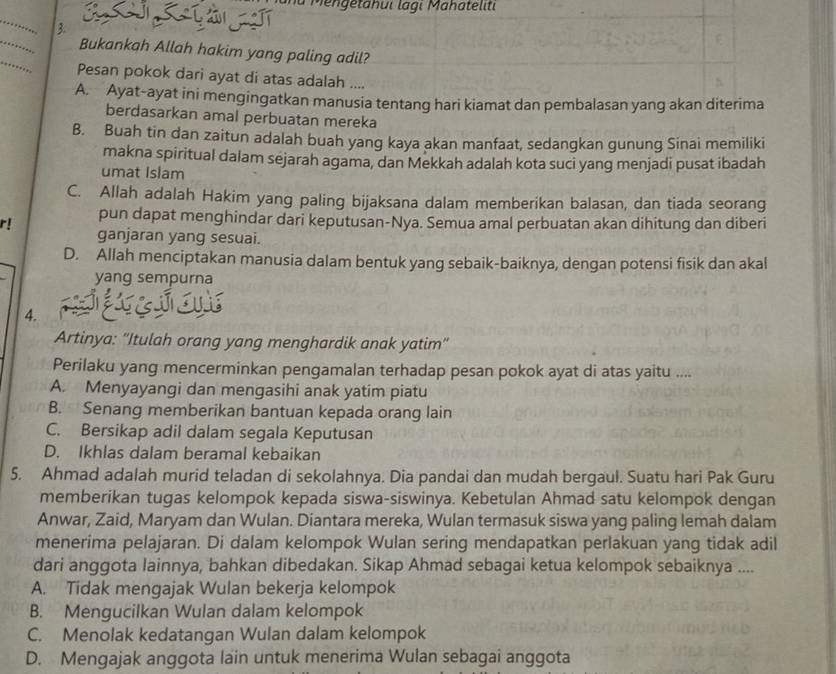 Mengetahui lagi Mahateliti
3. أَلَيْسَ اللَّهُ بِأَحْكَمِ الْحَكِمِينَ
Bukankah Allah hakim yang paling adil?
Pesan pokok dari ayat di atas adalah ....
A. Ayat-ayat ini mengingatkan manusia tentang hari kiamat dan pembalasan yang akan diterima
berdasarkan amal perbuatan mereka
B. Buah tin dan zaitun adalah buah yang kaya akan manfaat, sedangkan gunung Sinai memiliki
makna spiritual dalam sejarah agama, dan Mekkah adalah kota suci yang menjadi pusat ibadah
umat Islam
C. Allah adalah Hakim yang paling bijaksana dalam memberikan balasan, dan tiada seorang
pun dapat menghindar dari keputusan-Nya. Semua amal perbuatan akan dihitung dan diberi
r!
ganjaran yang sesuai.
D. Allah menciptakan manusia dalam bentuk yang sebaik-baiknya, dengan potensi fisik dan akal
yang sempurna
4. فَذَلِكَ الَّذِيْ يَدُعُّ الْيَتِيْمَ
Artinya: "Itulah orang yang menghardik anak yatim"
Perilaku yang mencerminkan pengamalan terhadap pesan pokok ayat di atas yaitu ....
A. Menyayangi dan mengasihi anak yatim piatu
B. Senang memberikan bantuan kepada orang lain
C. Bersikap adil dalam segala Keputusan
D. Ikhlas dalam beramal kebaikan
5. Ahmad adalah murid teladan di sekolahnya. Dia pandai dan mudah bergaul. Suatu hari Pak Guru
memberikan tugas kelompok kepada siswa-siswinya. Kebetulan Ahmad satu kelompok dengan
Anwar, Zaid, Maryam dan Wulan. Diantara mereka, Wulan termasuk siswa yang paling lemah dalam
menerima pelajaran. Di dalam kelompok Wulan sering mendapatkan perlakuan yang tidak adil
dari anggota lainnya, bahkan dibedakan. Sikap Ahmad sebagai ketua kelompok sebaiknya ....
A. Tidak mengajak Wulan bekerja kelompok
B. Mengucilkan Wulan dalam kelompok
C. Menolak kedatangan Wulan dalam kelompok
D. Mengajak anggota lain untuk menerima Wulan sebagai anggota